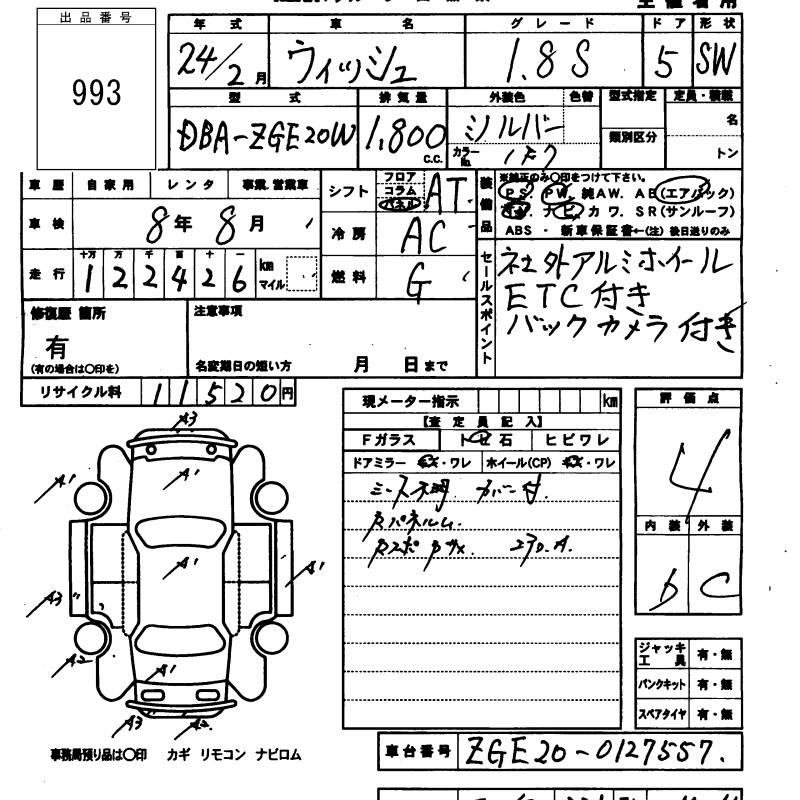 出品番号
993
年式 車名 グレード ドア 形状
24/2月 ウィッシュ 1.8S 5 SW
型式 排気量 外装色 色替 型式指定 定員・積載
DBA-ZGE20W 1,800 C.C. シルバー 名
カラーNo. 1F7 類別区分 トン
車歴 自家用 レンタ 事業.営業車
車検 8年8月
走行 十万 万 千 百 十 一
122426 km マイル
シフト フロア コラム パネル AT
冷房 AC
燃料 G
装備品
※純正のみ○印をつけて下さい。
PS. PW. 純AW. AB(エアバック)
ナビ カワ. SR(サンルーフ)
ABS ・ 新車保証書←(注)後日送りのみ
セールスポイント
社外アルミホイール
ETC付き
バックカメラ付き
修復歴 箇所 注意事項
有
(有の場合は○印を) 名変期日の短い方 月 日まで
リサイクル料 11520円
現メーター指示 km
【査定員記入】
Fガラス トビ石 ヒビワレ
ドアミラー キズ・ワレ ホイール(CP) キズ・ワレ
カバー付
評価点
4
内装 外装
b C
A3
A1 A1
A1 A1
A3
A2 A1
A3 A2
ジャッキ工具 有・無
パンクキット 有・無
スペアタイヤ 有・無
事務局預り品は○印 カギ リモコン ナビロム
車台番号 ZGE20-0127557.